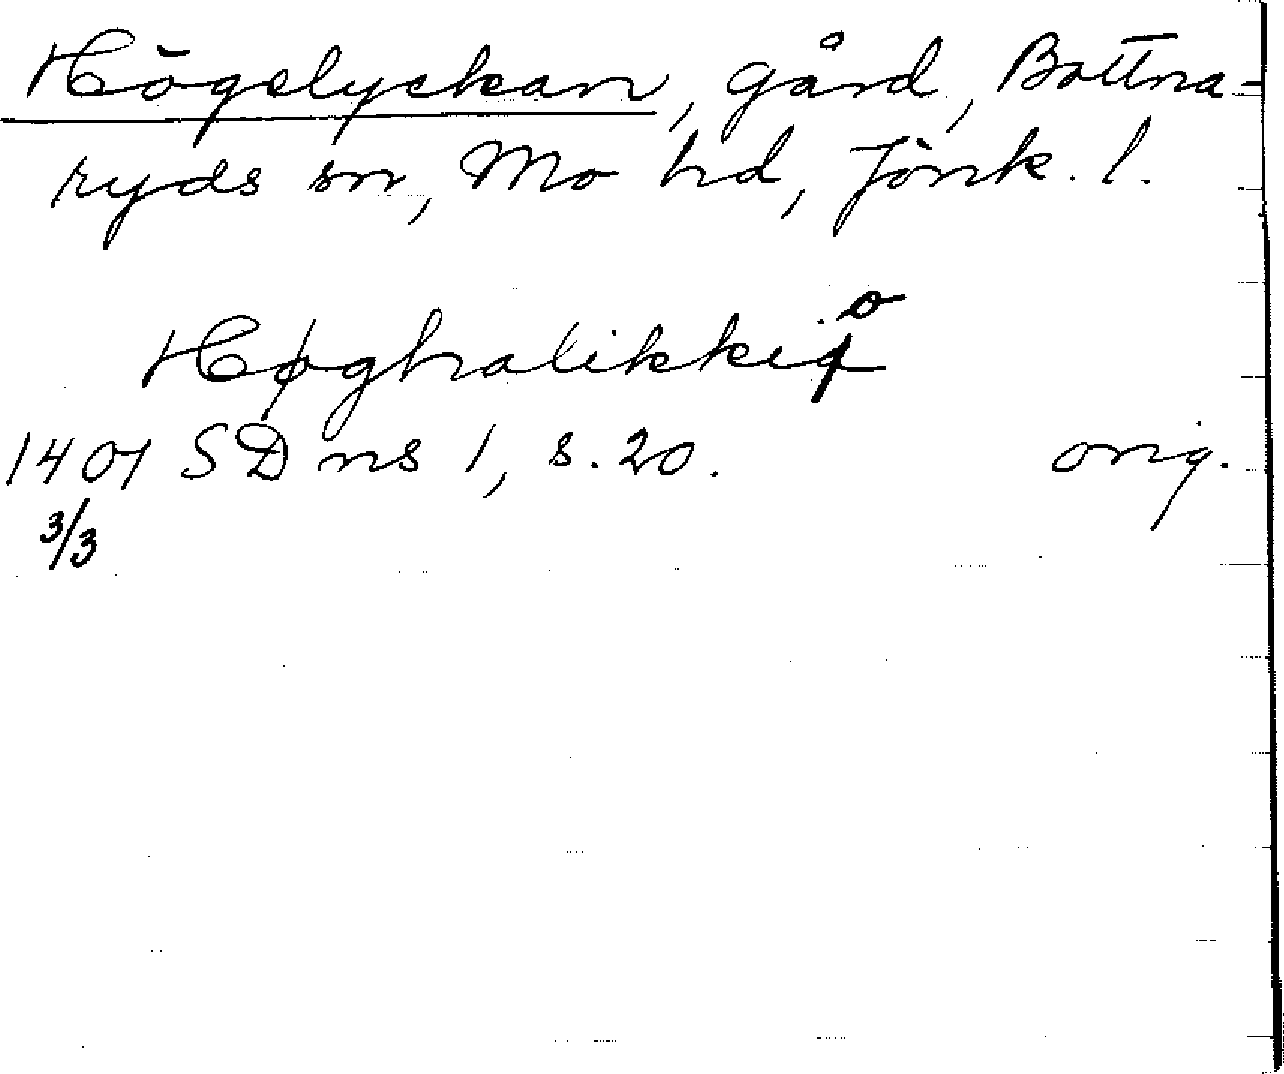 Högelyckan, gård, Bottna-
ryds sn, Mo hd, Jönk. l.
Høghalikkio
1401 SD ns 1, s. 20. orig.
3/3